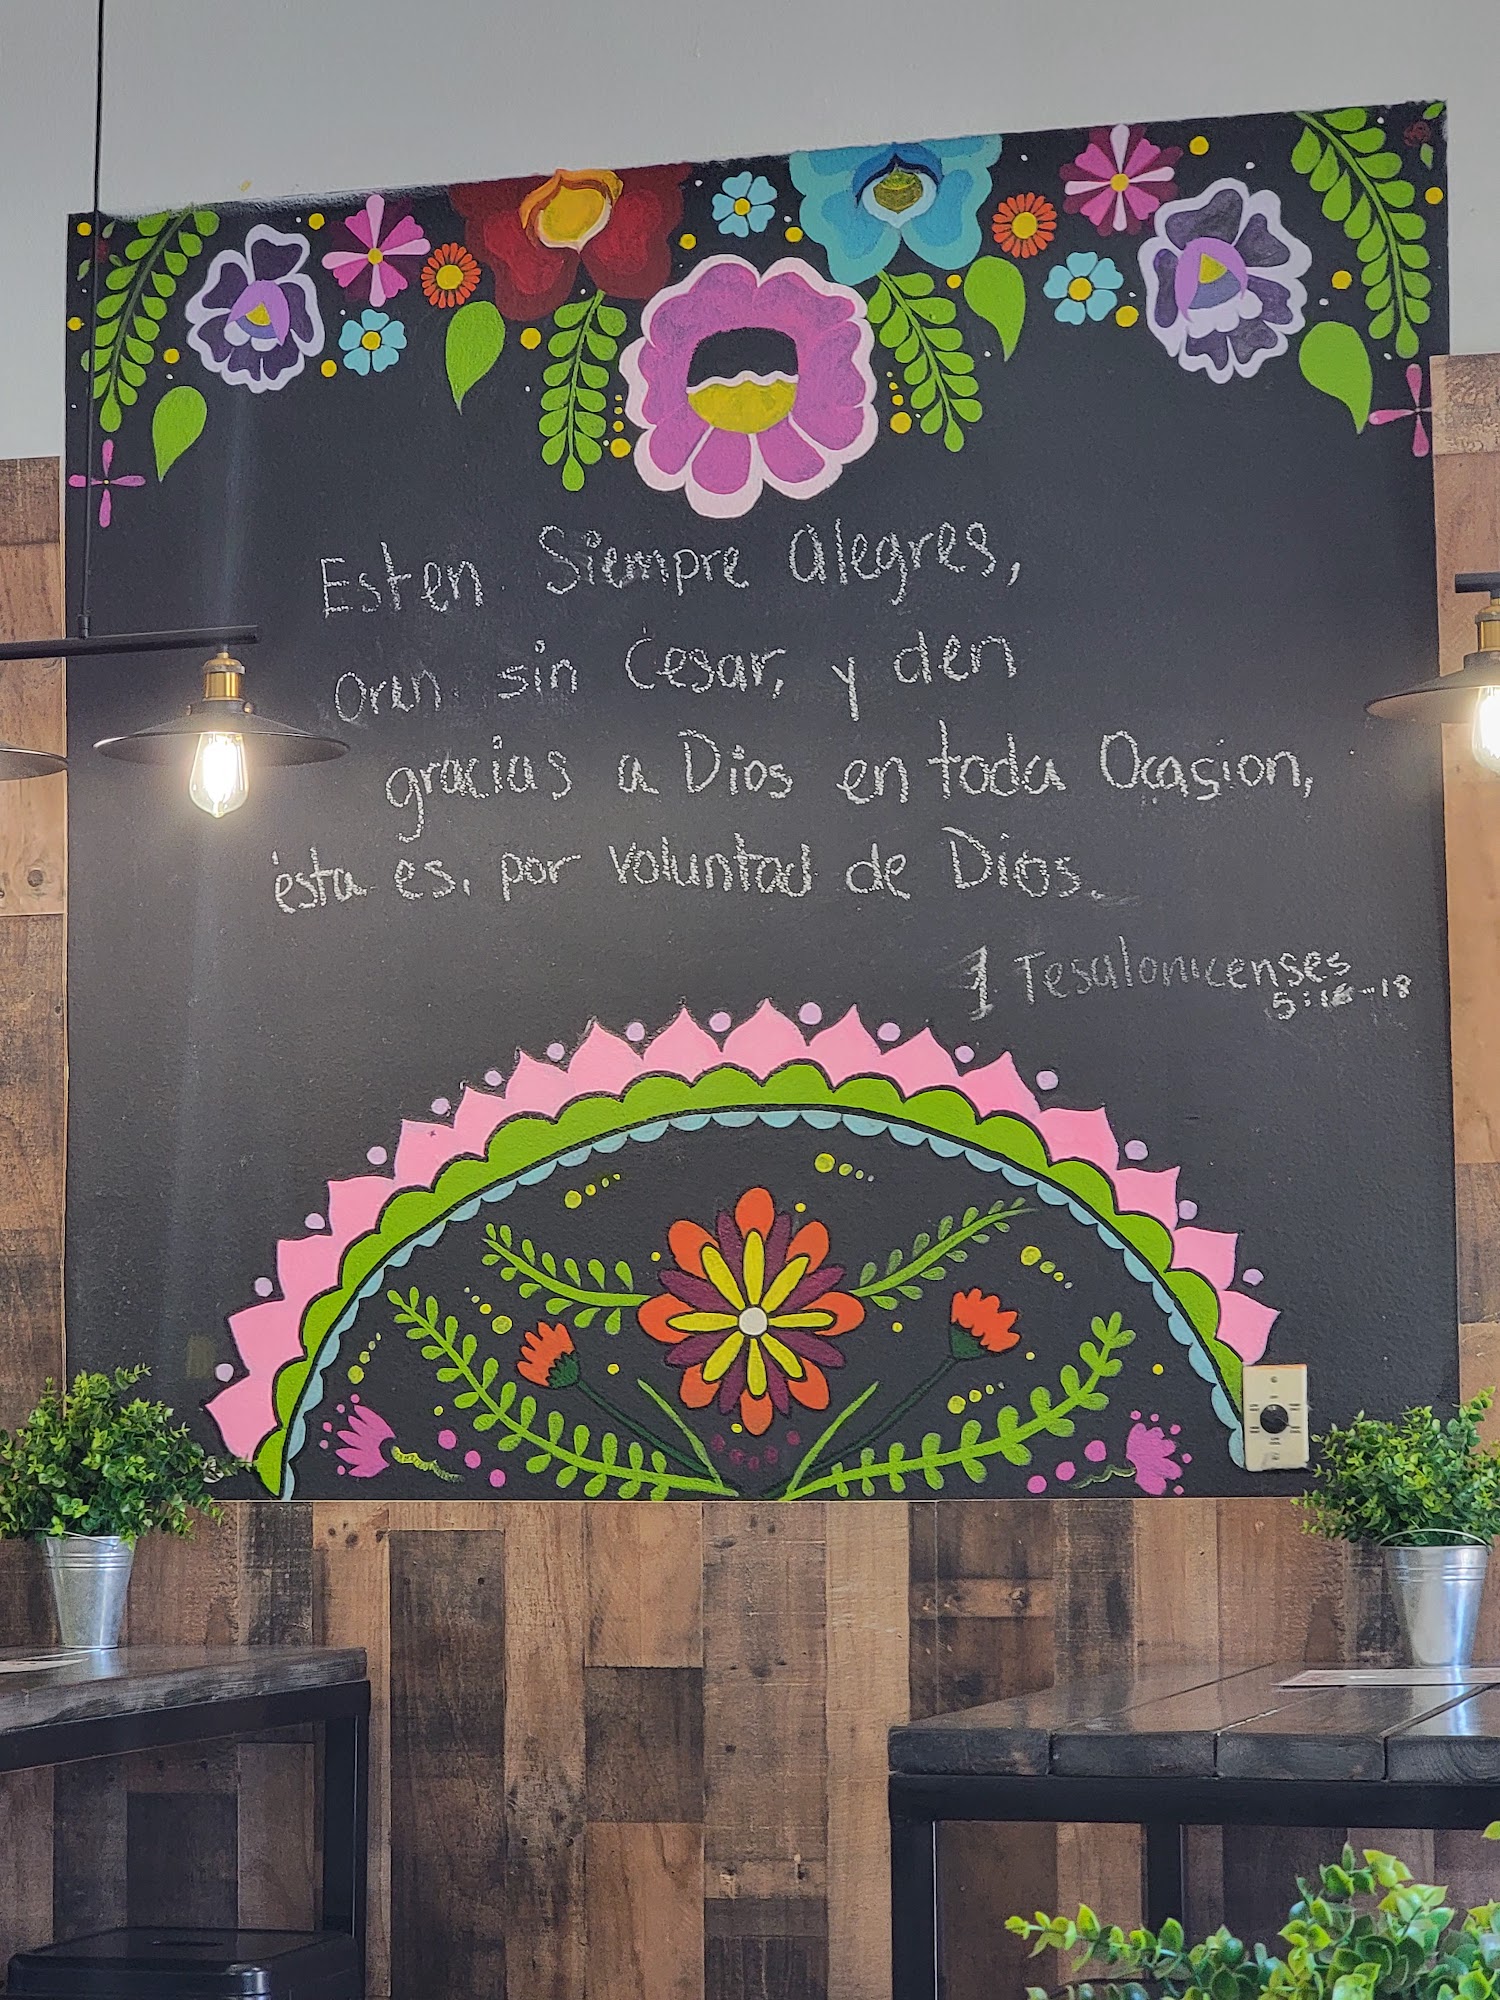 Esten Siempre alegres,
oren sin Cesar, y den
gracias a Dios en toda Ocasion,
ésta es, por voluntad de Dios.
1 Tesalonicenses
5:16-18